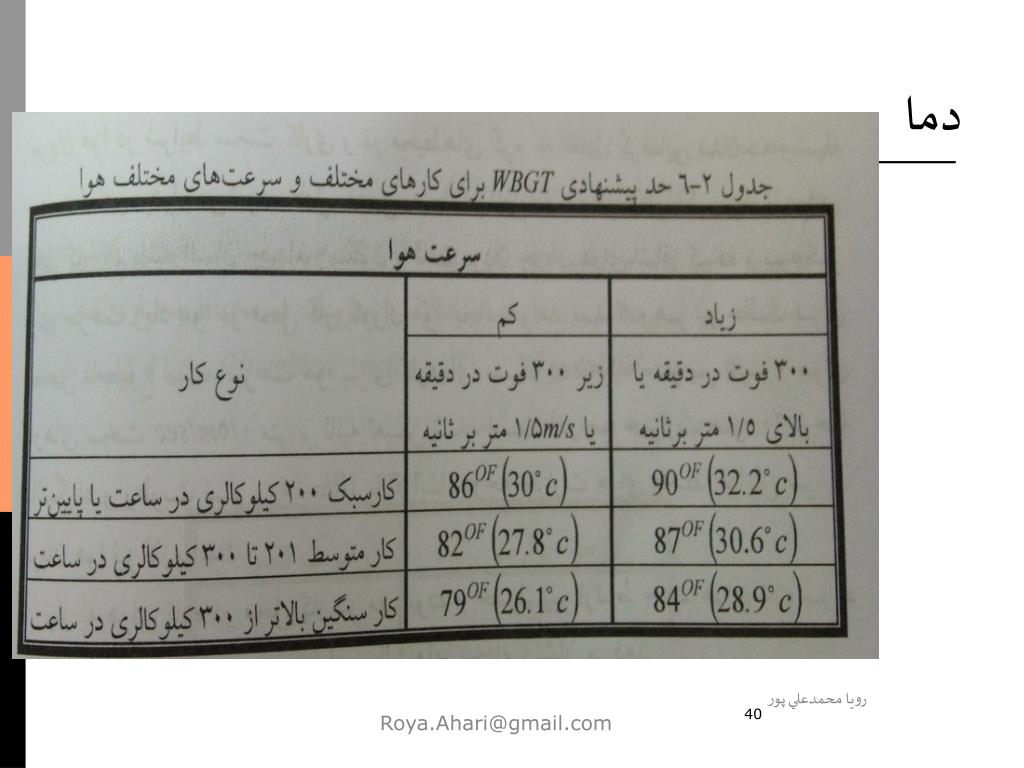 دما
جدول ۲-۶ حد پیشنهادی WBGT برای کارهای مختلف و سرعت‌های مختلف هوا
سرعت هوا
زیاد
کم
نوع کار
۳۰۰ فوت در دقیقه یا
بالای ۱/۵ متر برثانیه
زیر ۳۰۰ فوت در دقیقه
یا ۱/۵m/s متر بر ثانیه
90OF (32.2°c)
86OF (30°c)
کارسبک ۲۰۰ کیلوکالری در ساعت یا پایین‌تر
87OF (30.6°c)
82OF (27.8°c)
کار متوسط ۲۰۱ تا ۳۰۰ کیلوکالری در ساعت
84OF (28.9°c)
79OF (26.1°c)
کار سنگین بالاتر از ۳۰۰ کیلوکالری در ساعت
رویا محمدعلي پور
40
Roya.Ahari@gmail.com